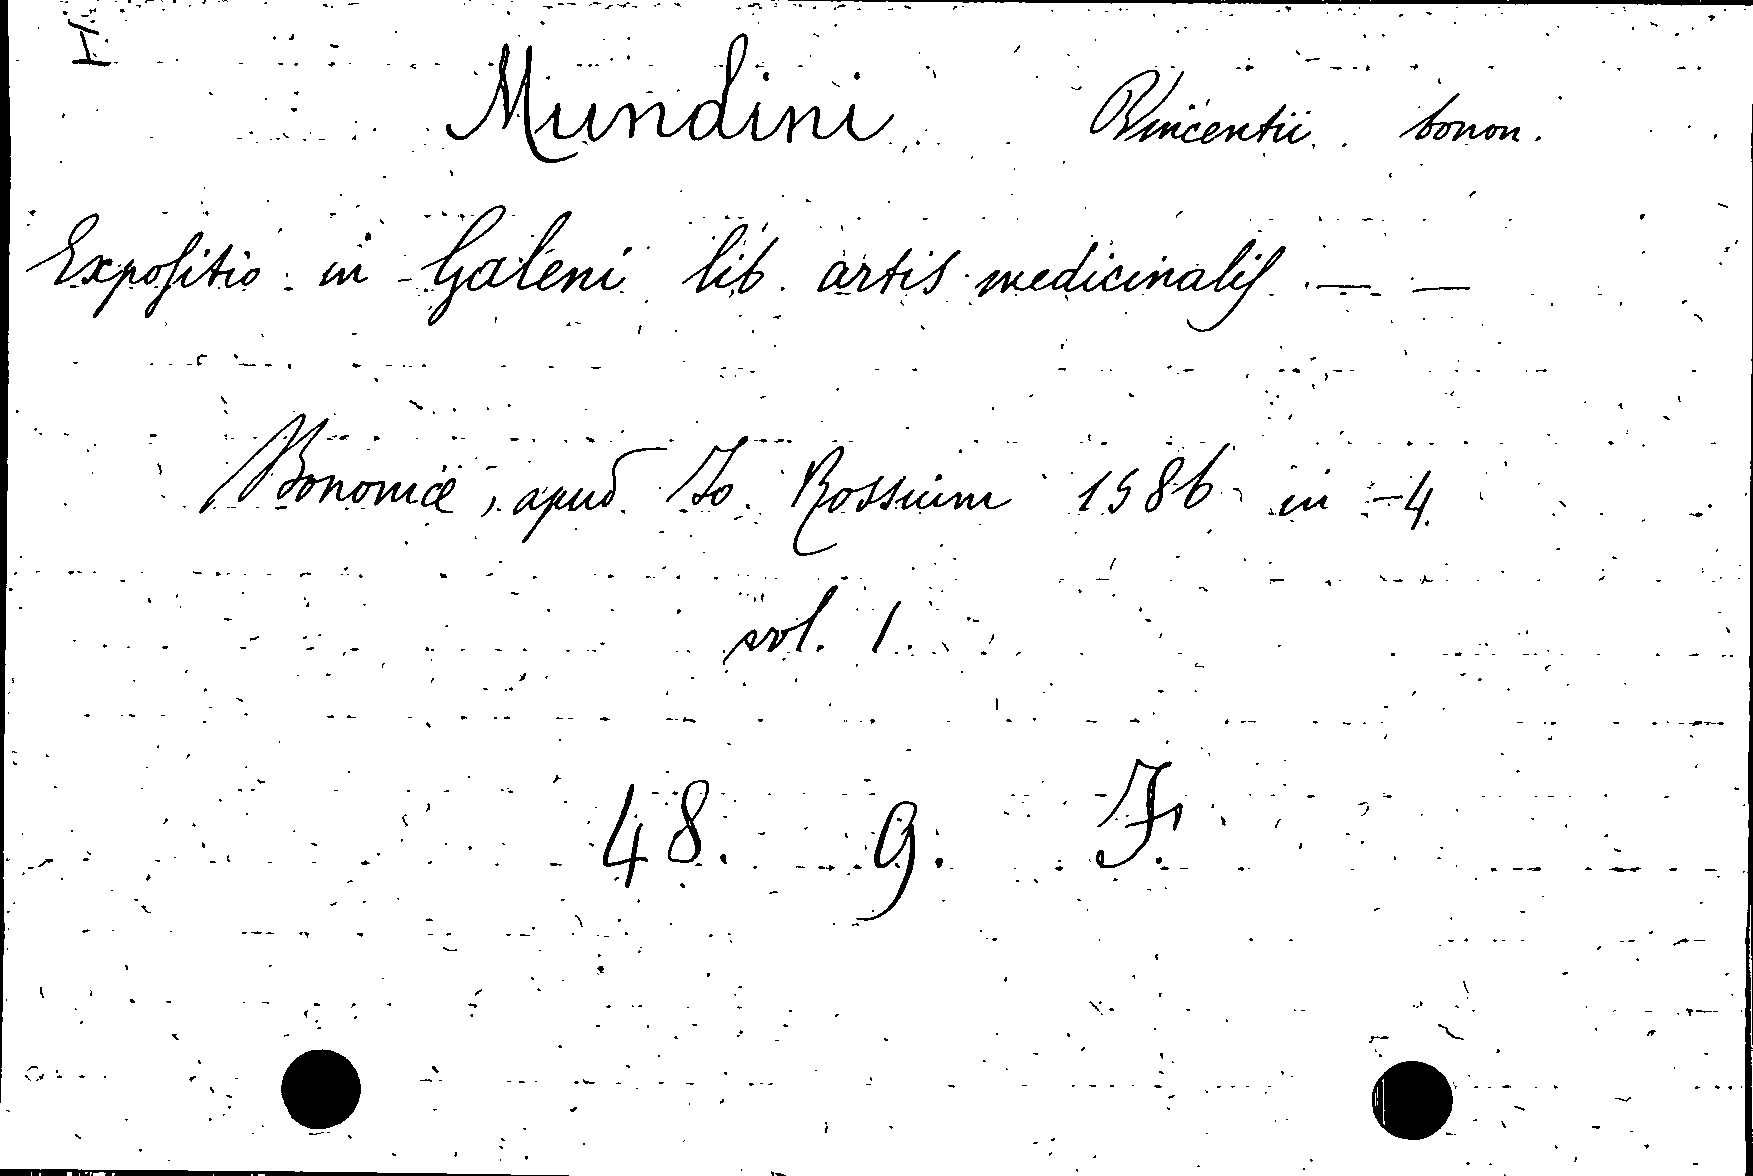 I
Mundini Vincentii bonon.
Expositio in Galeni lib. artis medicinalis — —
Bononiæ, apud Jo. Rossium 1586 in -4.
vol. 1.
48. 9. F.